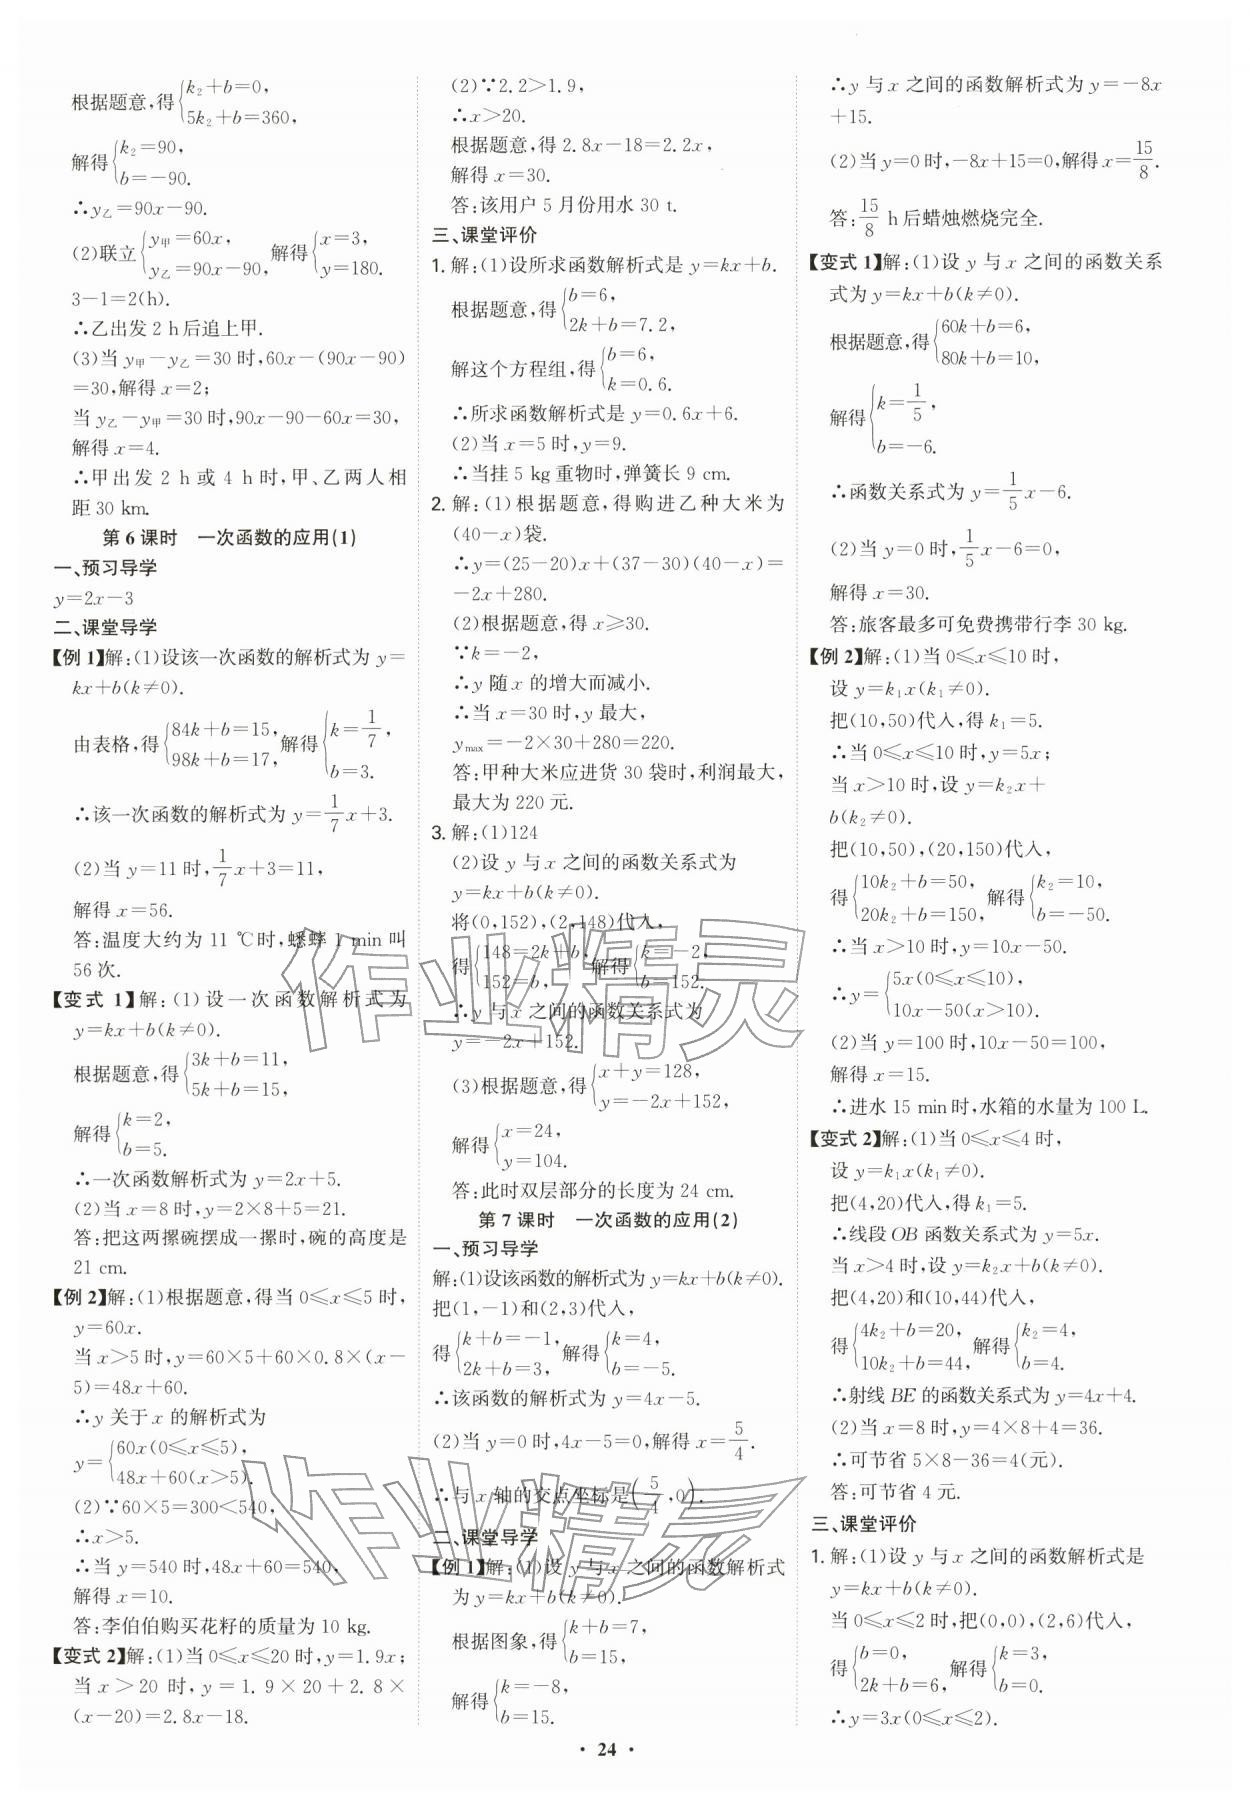 根据题意,得{k₂+b=0,
5k₂+b=360,
解得{k₂=90,
b=-90.
∴y乙=90x-90.
(2)联立{y甲=60x,
y乙=90x-90, 解得{x=3,
y=180.
3-1=2(h).
∴乙出发 2 h 后追上甲.
(3)当 y甲-y乙=30 时,60x-(90x-90)
=30,解得 x=2;
当 y乙-y甲=30 时,90x-90-60x=30,
解得 x=4.
∴甲出发 2 h 或 4 h 时,甲、乙两人相
距 30 km.
第 6 课时 一次函数的应用(1)
一、预习导学
y=2x-3
二、课堂导学
【例 1】解:(1)设该一次函数的解析式为 y=
kx+b(k≠0).
由表格,得{84k+b=15,
98k+b=17, 解得{k=1/7,
b=3.
∴该一次函数的解析式为 y=1/7x+3.
(2)当 y=11 时,1/7x+3=11,
解得 x=56.
答:温度大约为 11 ℃时,蟋蟀 1 min 叫
56 次.
【变式 1】解:(1)设一次函数解析式为
y=kx+b(k≠0).
根据题意,得{3k+b=11,
5k+b=15,
解得{k=2,
b=5.
∴一次函数解析式为 y=2x+5.
(2)当 x=8 时,y=2×8+5=21.
答:把这两摞碗摆成一摞时,碗的高度是
21 cm.
【例 2】解:(1)根据题意,得当 0≤x≤5 时,
y=60x.
当 x>5 时,y=60×5+60×0.8×(x-
5)=48x+60.
∴y 关于 x 的解析式为
y={60x(0≤x≤5),
48x+60(x>5).
(2)∵60×5=300<540,
∴x>5.
∴当 y=540 时,48x+60=540,
解得 x=10.
答:李伯伯购买花籽的质量为 10 kg.
【变式 2】解:(1)当 0≤x≤20 时,y=1.9x;
当 x>20 时,y=1.9×20+2.8×
(x-20)=2.8x-18.
(2)∵2.2>1.9,
∴x>20.
根据题意,得 2.8x-18=2.2x,
解得 x=30.
答:该用户 5 月份用水 30 t.
三、课堂评价
1. 解:(1)设所求函数解析式是 y=kx+b.
根据题意,得{b=6,
2k+b=7.2,
解这个方程组,得{b=6,
k=0.6.
∴所求函数解析式是 y=0.6x+6.
(2)当 x=5 时,y=9.
∴当挂 5 kg 重物时,弹簧长 9 cm.
2. 解:(1)根据题意,得购进乙种大米为
(40-x)袋.
∴y=(25-20)x+(37-30)(40-x)=
-2x+280.
(2)根据题意,得 x≥30.
∵k=-2,
∴y 随 x 的增大而减小.
∴当 x=30 时,y 最大,
ymax=-2×30+280=220.
答:甲种大米应进货 30 袋时,利润最大,
最大为 220 元.
3. 解:(1)124
(2)设 y 与 x 之间的函数关系式为
y=kx+b(k≠0).
将(0,152),(2,148)代入,
得{148=2k+b,
152=b, 解得{k=-2,
b=152.
∴y 与 x 之间的函数关系式为
y=-2x+152.
(3)根据题意,得{x+y=128,
y=-2x+152,
解得{x=24,
y=104.
答:此时双层部分的长度为 24 cm.
第 7 课时 一次函数的应用(2)
一、预习导学
解:(1)设该函数的解析式为 y=kx+b(k≠0).
把(1,-1)和(2,3)代入,
得{k+b=-1,
2k+b=3, 解得{k=4,
b=-5.
∴该函数的解析式为 y=4x-5.
(2)当 y=0 时,4x-5=0,解得 x=5/4.
∴与 x 轴的交点坐标是(5/4,0).
二、课堂导学
【例 1】解:(1)设 y 与 x 之间的函数解析式
为 y=kx+b(k≠0).
根据图象,得{k+b=7,
b=15,
解得{k=-8,
b=15.
∴y 与 x 之间的函数解析式为 y=-8x
+15.
(2)当 y=0 时,-8x+15=0,解得 x=15/8.
答:15/8 h 后蜡烛燃烧完全.
【变式 1】解:(1)设 y 与 x 之间的函数关系
式为 y=kx+b(k≠0).
根据题意,得{60k+b=6,
80k+b=10,
解得{k=1/5,
b=-6.
∴函数关系式为 y=1/5x-6.
(2)当 y=0 时,1/5x-6=0,
解得 x=30.
答:旅客最多可免费携带行李 30 kg.
【例 2】解:(1)当 0≤x≤10 时,
设 y=k₁x(k₁≠0).
把(10,50)代入,得 k₁=5.
∴当 0≤x≤10 时,y=5x;
当 x>10 时,设 y=k₂x+
b(k₂≠0).
把(10,50),(20,150)代入,
得{10k₂+b=50,
20k₂+b=150, 解得{k₂=10,
b=-50.
∴当 x>10 时,y=10x-50.
∴y={5x(0≤x≤10),
10x-50(x>10).
(2)当 y=100 时,10x-50=100,
解得 x=15.
∴进水 15 min 时,水箱的水量为 100 L.
【变式 2】解:(1)当 0≤x≤4 时,
设 y=k₁x(k₁≠0).
把(4,20)代入,得 k₁=5.
∴线段 OB 函数关系式为 y=5x.
当 x>4 时,设 y=k₂x+b(k≠0).
把(4,20)和(10,44)代入,
得{4k₂+b=20,
10k₂+b=44, 解得{k₂=4,
b=4.
∴射线 BE 的函数关系式为 y=4x+4.
(2)当 x=8 时,y=4×8+4=36.
∴可节省 5×8-36=4(元).
答:可节省 4 元.
三、课堂评价
1. 解:(1)设 y 与 x 之间的函数解析式是
y=kx+b(k≠0).
当 0≤x≤2 时,把(0,0),(2,6)代入,
得{b=0,
2k+b=6, 解得{k=3,
b=0.
∴y=3x(0≤x≤2).
· 24 ·
作业精灵
作业精灵